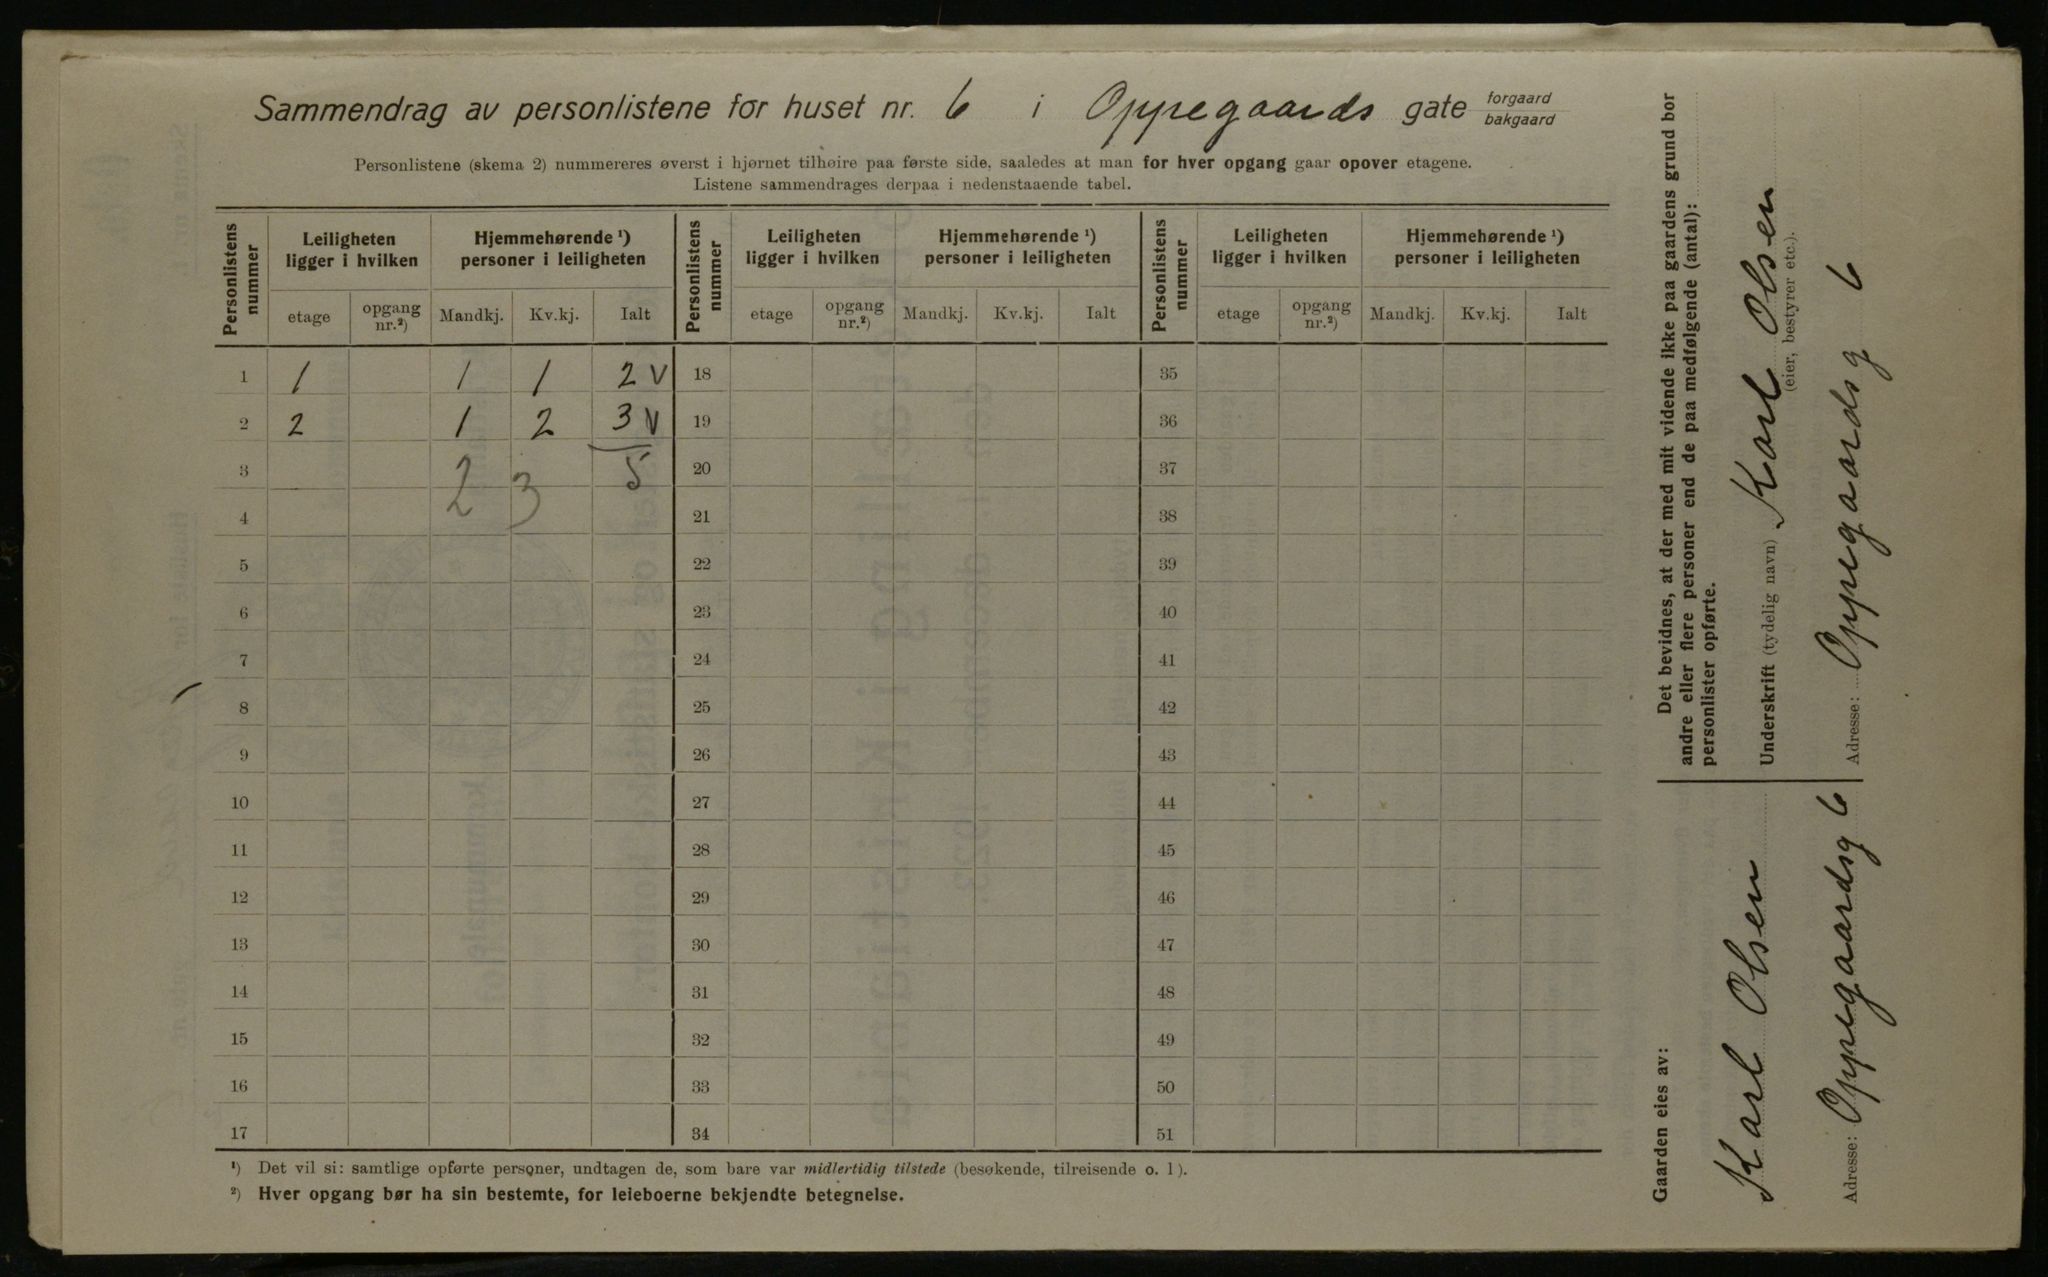 Sammendrag av personlistene for huset nr. 6 i Oppegaards gate forgaard bakgaard
Personlistene (skema 2) nummereres øverst i hjørnet tilhøire paa første side, saaledes at man for hver opgang gaar opover etagene.
Listene sammendrages derpaa i nedenstaaende tabel.
Personlistens nummer Leiligheten ligger i hvilken Hjemmehørende ¹) personer i leiligheten Personlistens nummer Leiligheten ligger i hvilken Hjemmehørende ¹) personer i leiligheten Personlistens nummer Leiligheten ligger i hvilken Hjemmehørende ¹) personer i leiligheten
etage opgang nr.²) Mandkj. Kv.kj. Ialt etage opgang nr.²) Mandkj. Kv.kj. Ialt etage opgang nr.²) Mandkj. Kv.kj. Ialt
1 1 1 1 2 V 18 35
2 2 1 2 3 V 19 36
3 2 3 5 20 37
4 21 38
5 22 39
6 23 40
7 24 41
8 25 42
9 26 43
10 27 44
11 28 45
12 29 46
13 30 47
14 31 48
15 32 49
16 33 50
17 34 51
¹) Det vil si: samtlige opførte personer, undtagen de, som bare var midlertidig tilstede (besøkende, tilreisende o. l).
²) Hver opgang bør ha sin bestemte, for leieboerne bekjendte betegnelse.
Gaarden eies av:
Karl Olsen
Adresse: Oppegaardsg 6
Det bevidnes, at der med mit vidende ikke paa gaardens grund bor
andre eller flere personer end de paa medfølgende (antal):
personlister opførte.
Underskrift (tydelig navn) Karl Olsen
(eier, bestyrer etc.).
Adresse: Oppegaardsg 6